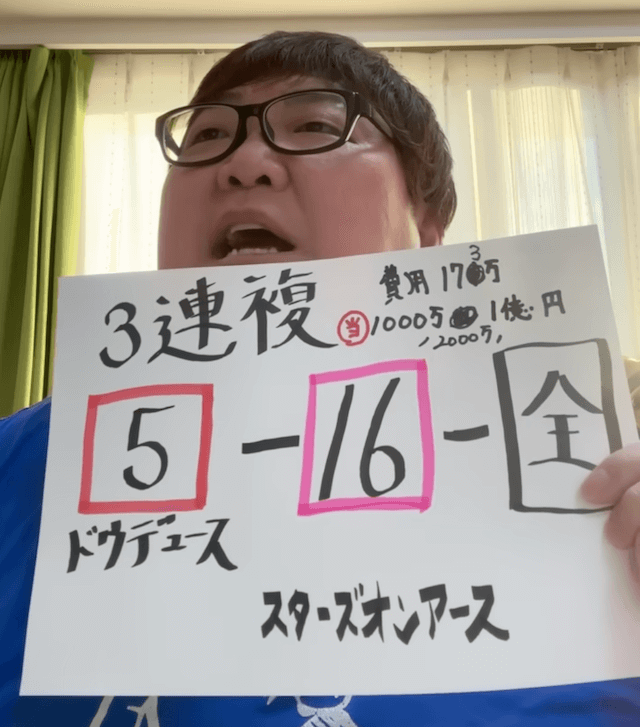 3連複
費用 173万
当 1000万 1億円
2000万
5-16-全
ドウデュース
スターズオンアース